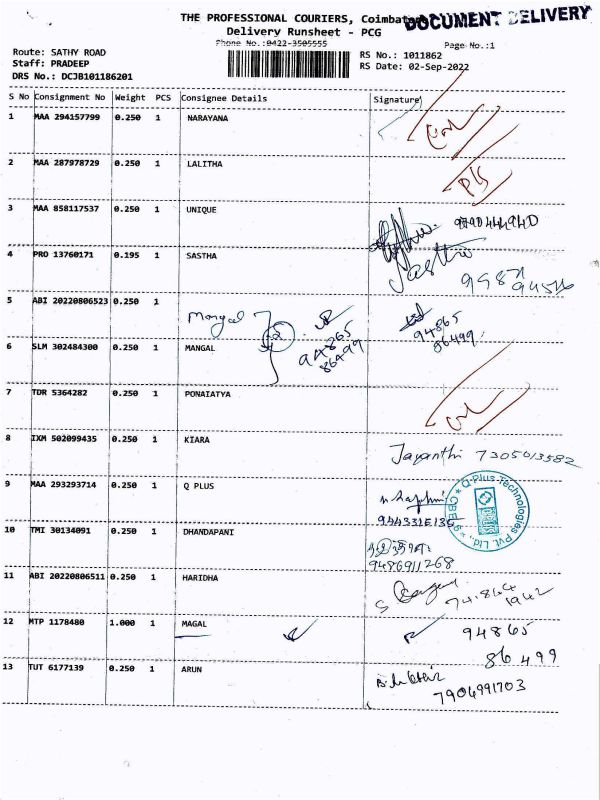 THE PROFESSIONAL COURIERS, Coimbato
DOCUMENT DELIVERY
Delivery Runsheet - PCG
Phone No.:0422-3505555
Page No.:1
Route: SATHY ROAD
Staff: PRADEEP
DRS No.: DCJB101186201
RS No.: 1011862
RS Date: 02-Sep-2022
S No Consignment No Weight PCS Consignee Details Signature
1 MAA 294157799 0.250 1 NARAYANA
2 MAA 287978729 0.250 1 LALITHA
3 MAA 858117537 0.250 1 UNIQUE
4 PRO 13760171 0.195 1 SASTHA Sastha
5 ABI 20220806523 0.250 1
Mangal 94865 86499 94865 86499
6 SLM 302484300 0.250 1 MANGAL
7 TDR 5364282 0.250 1 PONAIATYA
8 IXM 502099435 0.250 1 KIARA
Jayanthi 7305013582
9 MAA 293293714 0.250 1 Q PLUS
Q-Plus Technologies Pvt. Ltd., CBE
10 TMI 30134091 0.250 1 DHANDAPANI
9486911268
11 ABI 20220806511 0.250 1 HARIDHA
12 MTP 1178480 1.000 1 MAGAL 94865
86499
13 TUT 6177139 0.250 1 ARUN
7904991703